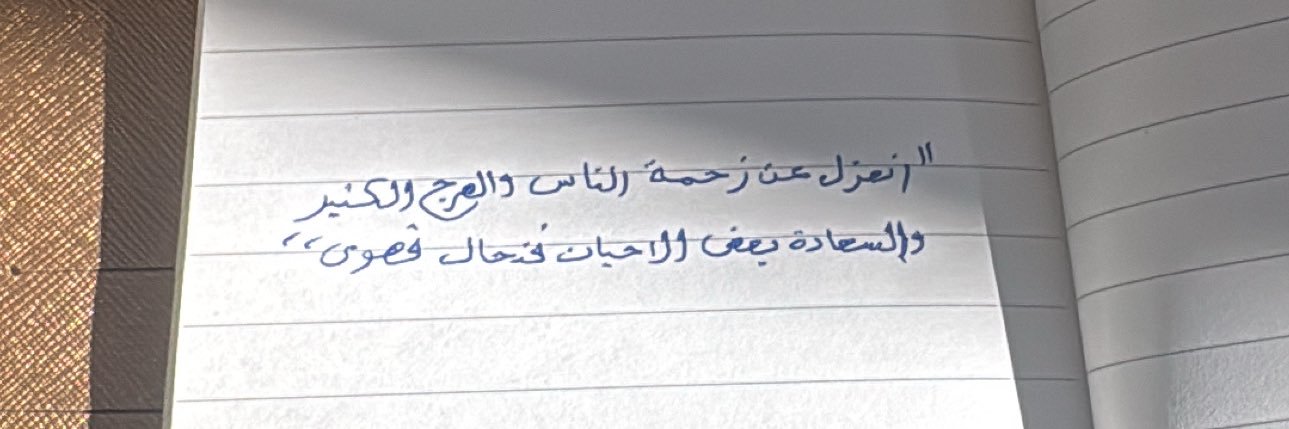 "انعزل عن زحمة الناس والهرج والكثير
والسعادة بعض الاحيان فنجال قهوى،،